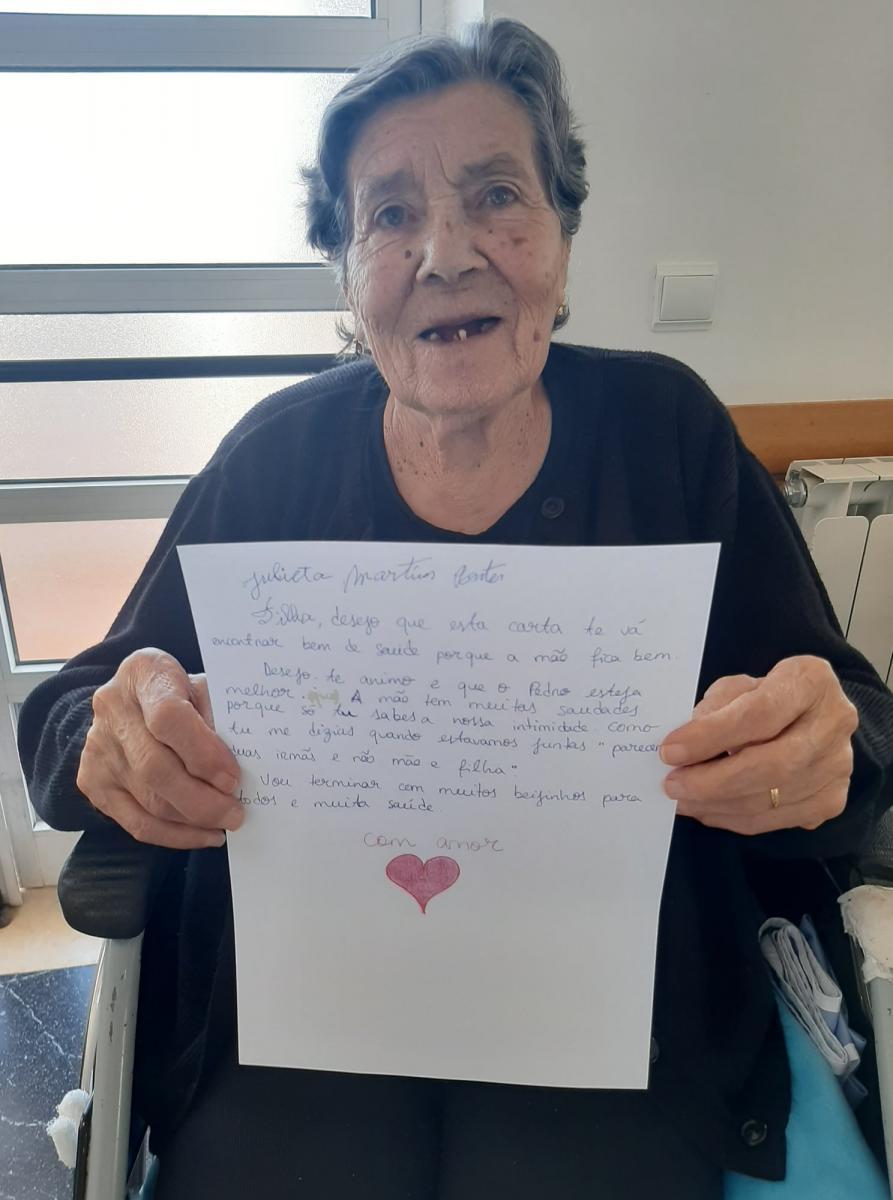 Julieta Martins Pontes
Filha, desejo que esta carta te vá
encontrar bem de saúde porque a mão fica bem.
Desejo-te animo e que o Pedro esteja
melhor. A mão tem muitas saudades
porque só tu sabes a nossa intimidade. como
tu me dizias quando estavamos juntas "parecem
duas irmãs e não mão e filha".
Vou terminar com muitos beijinhos para
todos e muita saúde.
com amor